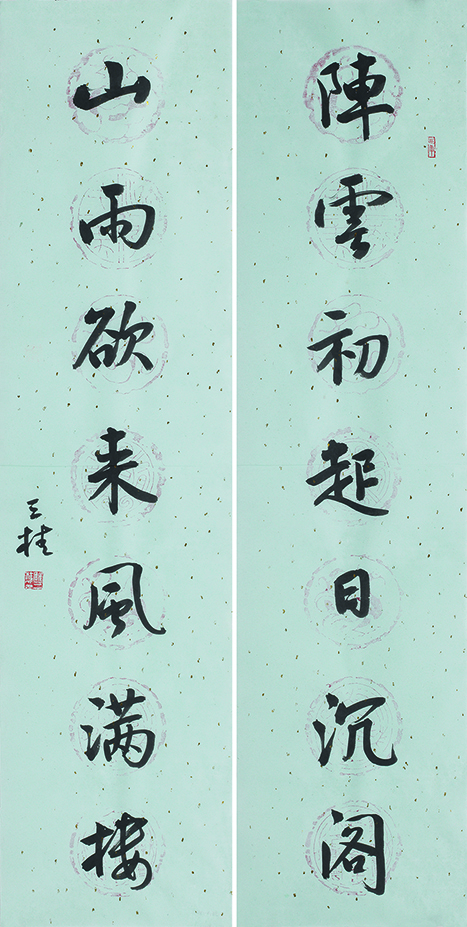 陣雲初起日沉阁
山雨欲来風满楼